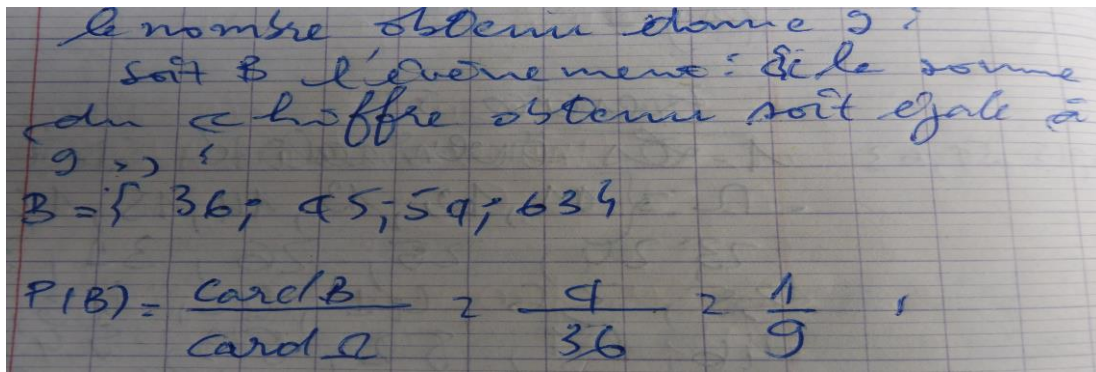 le nombre obtenu donne 9 :
soit B l'évènement : si le somme
du chiffre obtenu soit egale à
9 >>
B = { 36; 45; 54; 63}
P(B) = card B / card Ω = 4 / 36 = 1 / 9